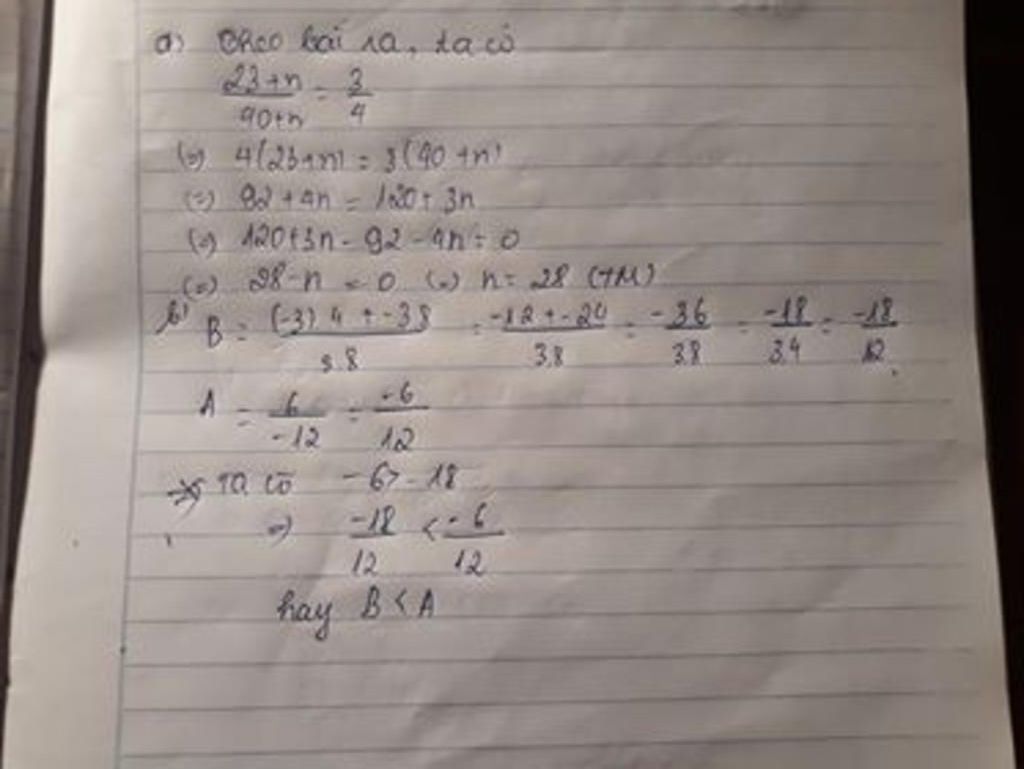 a) Theo bài ra, ta có
23+n / 40+n = 3/4
(=) 4(23+n) = 3(40+n)
(=) 92 + 4n = 120 + 3n
(=) 120+3n - 92 - 4n = 0
(=) 28-n = 0 (=) n = 28 (TM)
b) B = (-3) 4 + -38 / 3.8 = -12 + -24 / 3.8 = -36 / 3.8 = -18 / 3.4 = -18 / 12
A = 6 / -12 = -6 / 12
Ta có -6 > -18
=) -18 / 12 < -6 / 12
hay B < A